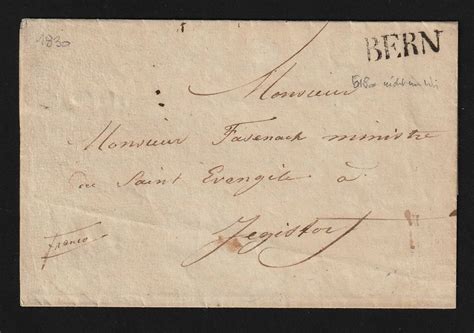 1830
BERN
Monsieur
518a
Monsieur Fasenach ministre
du Saint Evangile à
Jegistorf
Franco